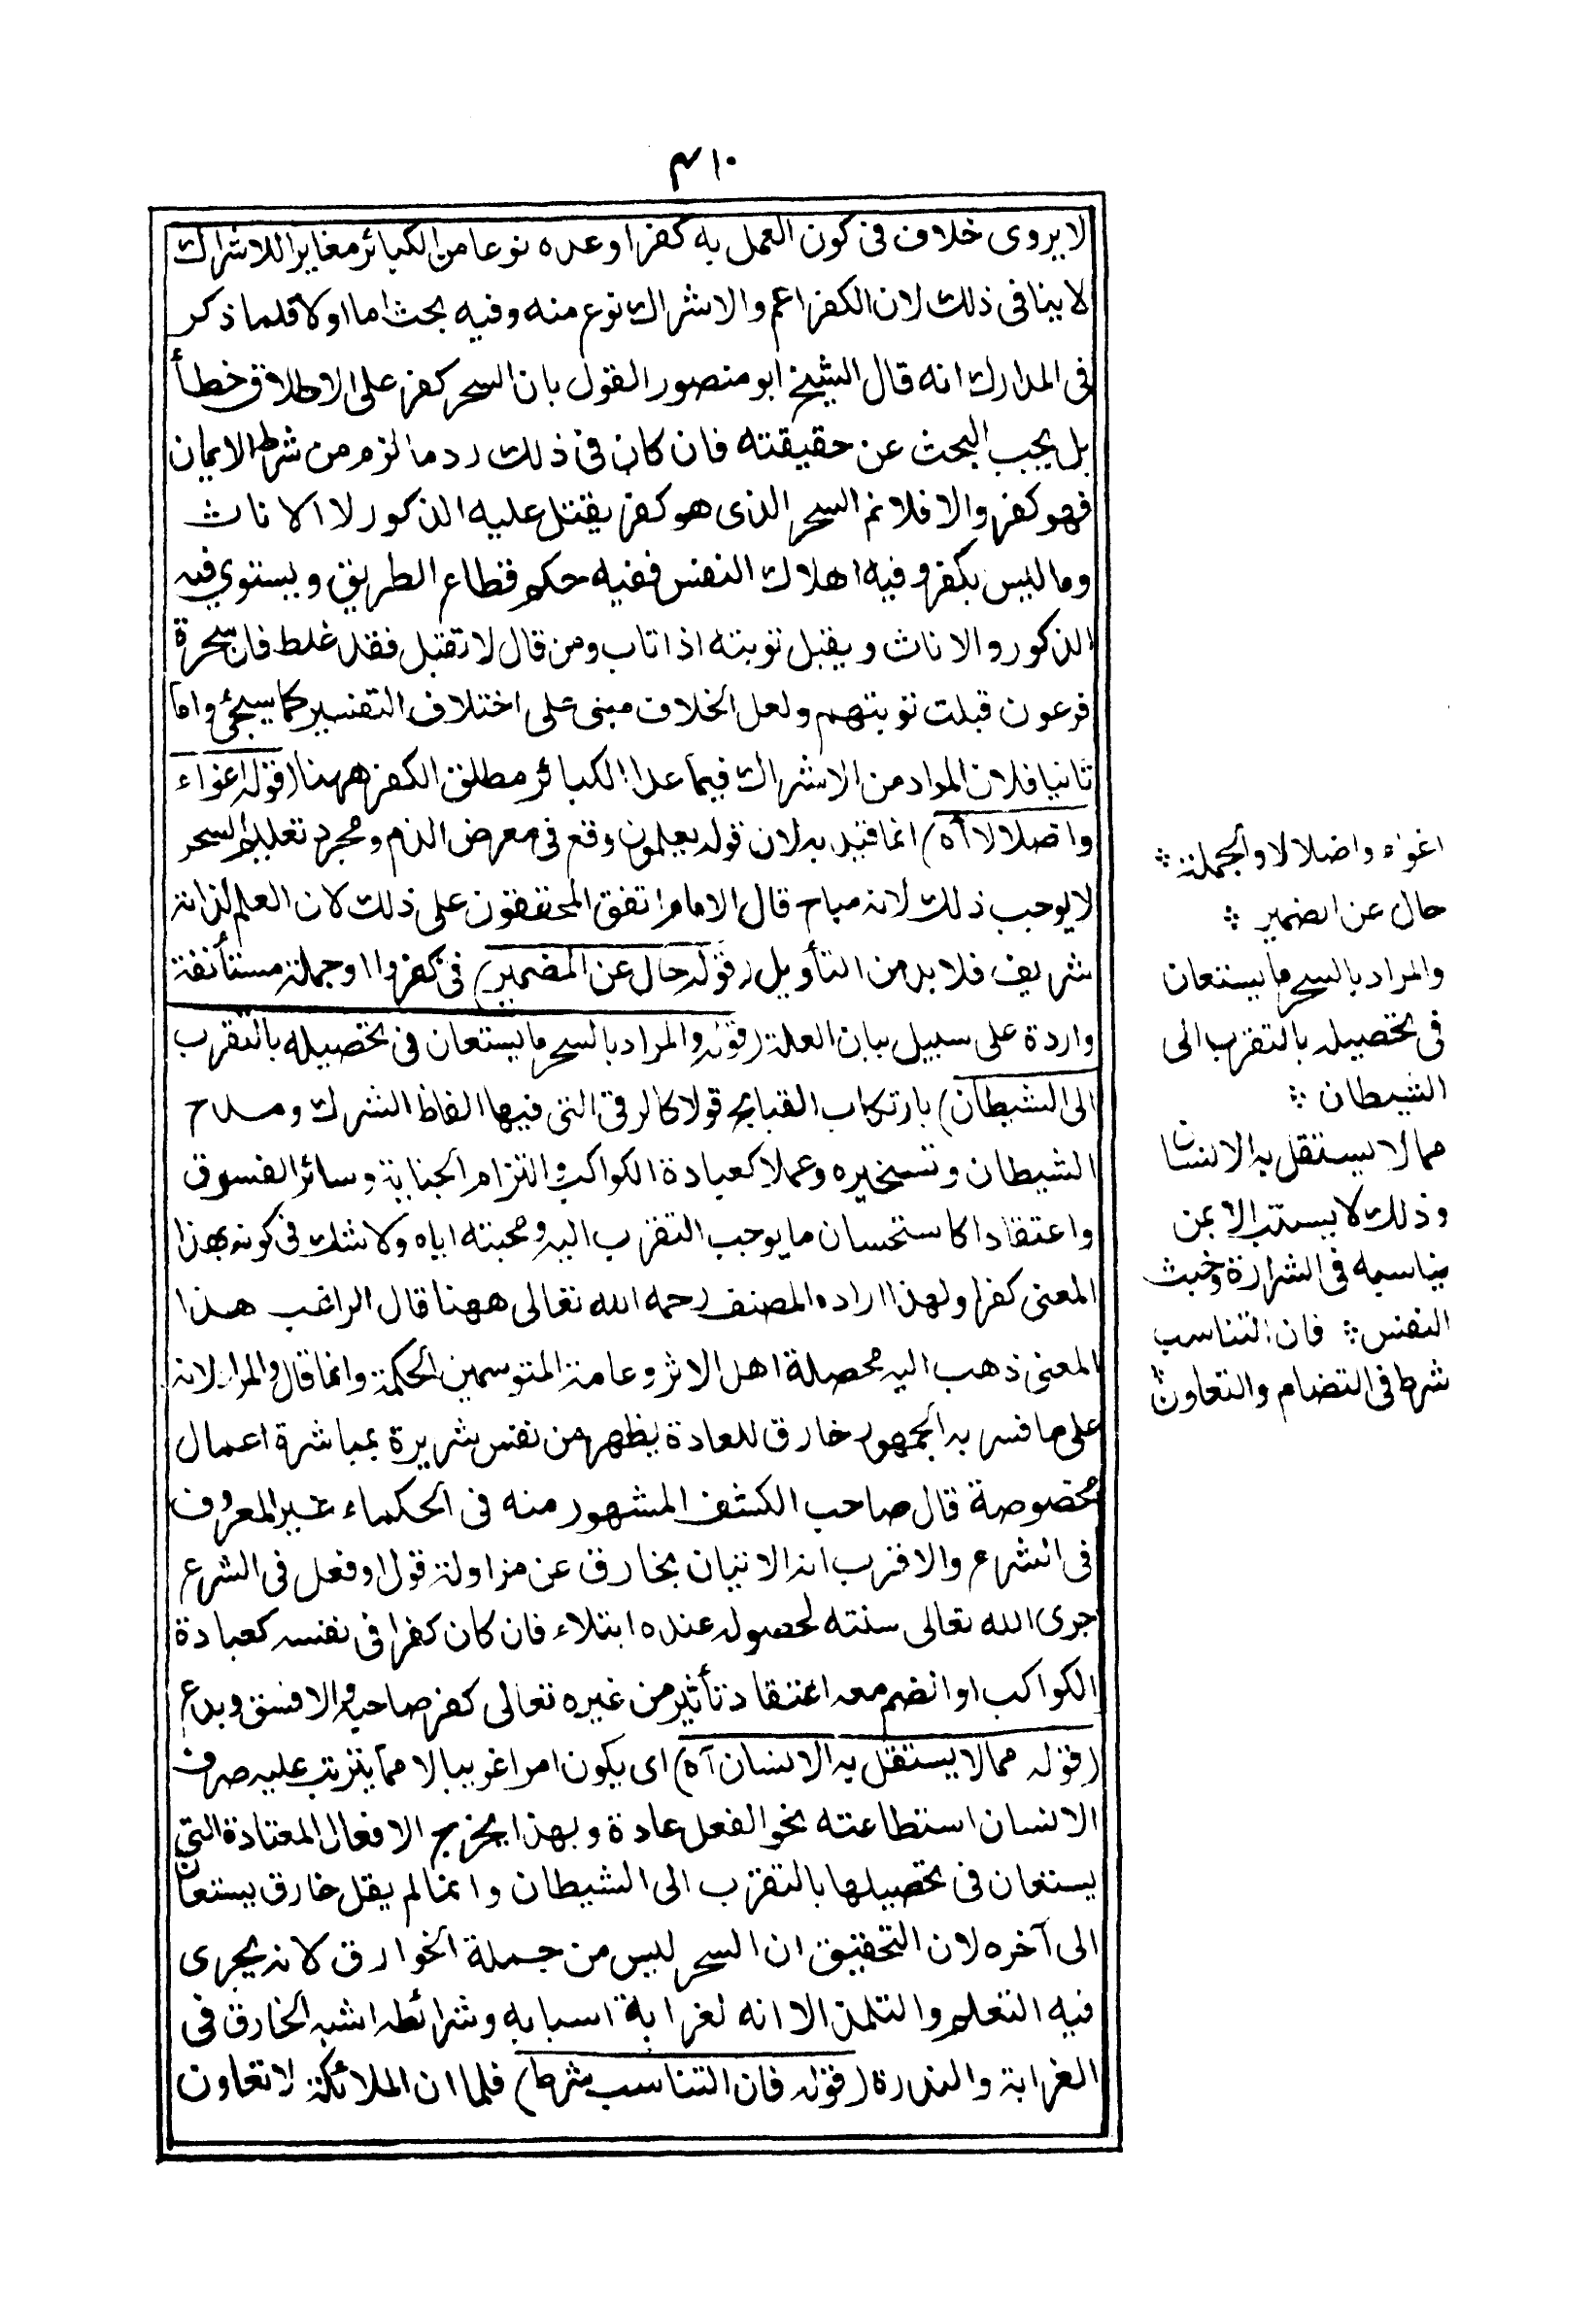 ٤١٠
لا يروى خلاف فى كون العمل به كفرا وعده نوعا من الكبائر مغايرا للاشراك
لا ينافى ذلك لان الكفر اعم والاشراك نوع منه وفيه بحث اما اولا فلما ذكر
فى المدارك انه قال الشيخ ابو منصور القول بان السحر كفر على الاطلاق خطأ
بل يجب البحث عن حقيقته فان كان فى ذلك رد ما لزم من شرط الايمان
فهو كفر والا فلا ثم السحر الذى هو كفر يقتل عليه الذكور لا الاناث
وما ليس بكفر وفيه اهلاك النفس ففيه حكم قطاع الطريق ويستوي فيه
الذكور والاناث ويقبل توبته اذا تاب ومن قال لا تقبل فقد غلط فان سحرة
فرعون قبلت توبتهم ولعل الخلاف مبنى على اختلاف التفسير كما سيجئ واما
ثانيا فلان المراد من الاشراك فيما عدا الكبائر مطلق الكفر ههنا (قوله اغواء
واضلالا آه) انما قيد به لان قوله يعلمون وقع فى معرض الذم ومجرد تعليم السحر
لا يوجب ذلك لانه مباح قال الامام اتفق المحققون على ذلك لان العلم لذاته
شريف فلا بد من التأويل (قوله حال عن الضمير) فى كفروا او جملة مستأنفة
واردة على سبيل بيان العلة (قوله والمراد بالسحر ما يستعان فى تحصيله بالتقرب
الى الشيطان) بارتكاب القبائح قولا كالرقى التى فيها الفاظ الشرك ومدح
الشيطان وتسخيره وعملا كعبادة الكواكب والتزام الجنابة وسائر الفسوق
واعتقادا كاستحسان ما يوجب التقرب اليه ومحبته اياه ولا شك فى كونه بهذا
المعنى كفرا ولهذا اراده المصنف رحمه الله تعالى ههنا قال الراغب هذا
المعنى ذهب اليه محصلة اهل الاثر وعامة المتوسمين الحكمة وانما قال والمراد لانه
على ما فسر به الجمهور خارق للعادة يظهر من نفس شريرة بمباشرة اعمال
مخصوصة قال صاحب الكشف المشهور منه فى الحكماء غير المعروف
فى الشرع والاقرب انه الاتيان بخارق عن مزاولة قول او فعل فى الشرع
اجرى الله تعالى سنته لحصوله عنده ابتلاء فان كان كفرا فى نفسه كعبادة
الكواكب او انضم معه اعتقاد تأثير من غيره تعالى كفر صاحبه والا فسق وبدع
(قوله مما لا يستقل به الانسان آه) اى يكون امرا غريبا لا مما يترتب عليه صرف
الانسان استطاعته نحو الفعل عادة وبهذا يخرج الافعال المعتادة التى
يستعان فى تحصيلها بالتقرب الى الشيطان وانما لم يقل خارق يستعان
الى آخره لان التحقيق ان السحر ليس من جملة الخوارق لانه يجرى
فيه التعلم والتلمذ الا انه لغرابة اسبابه وشرائطه اشبه الخارق فى
الغرابة والندرة (قوله فان التناسب شرط) فلما ان الملائكة لا تعاون
اغواء واضلالا والجملة ؞
حال عن الضمير ؞
والمراد بالسحر ما يستعان
فى تحصيله بالتقرب الى
الشيطان ؞
مما لا يستقل به الانسان
وذلك لا يستتب الا بمن
يناسبه فى الشرارة وخبث
النفس ؞ فان التناسب
شرط فى التضام والتعاون